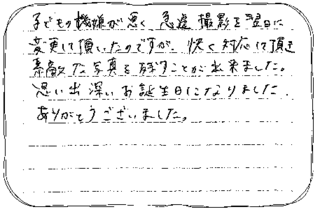 子どもの機嫌が悪く、急遽撮影を翌日に
変更して頂いたのですが、快く対応して頂き
素敵な写真を残すことが出来ました。
思い出深いお誕生日になりました。
ありがとうございました。